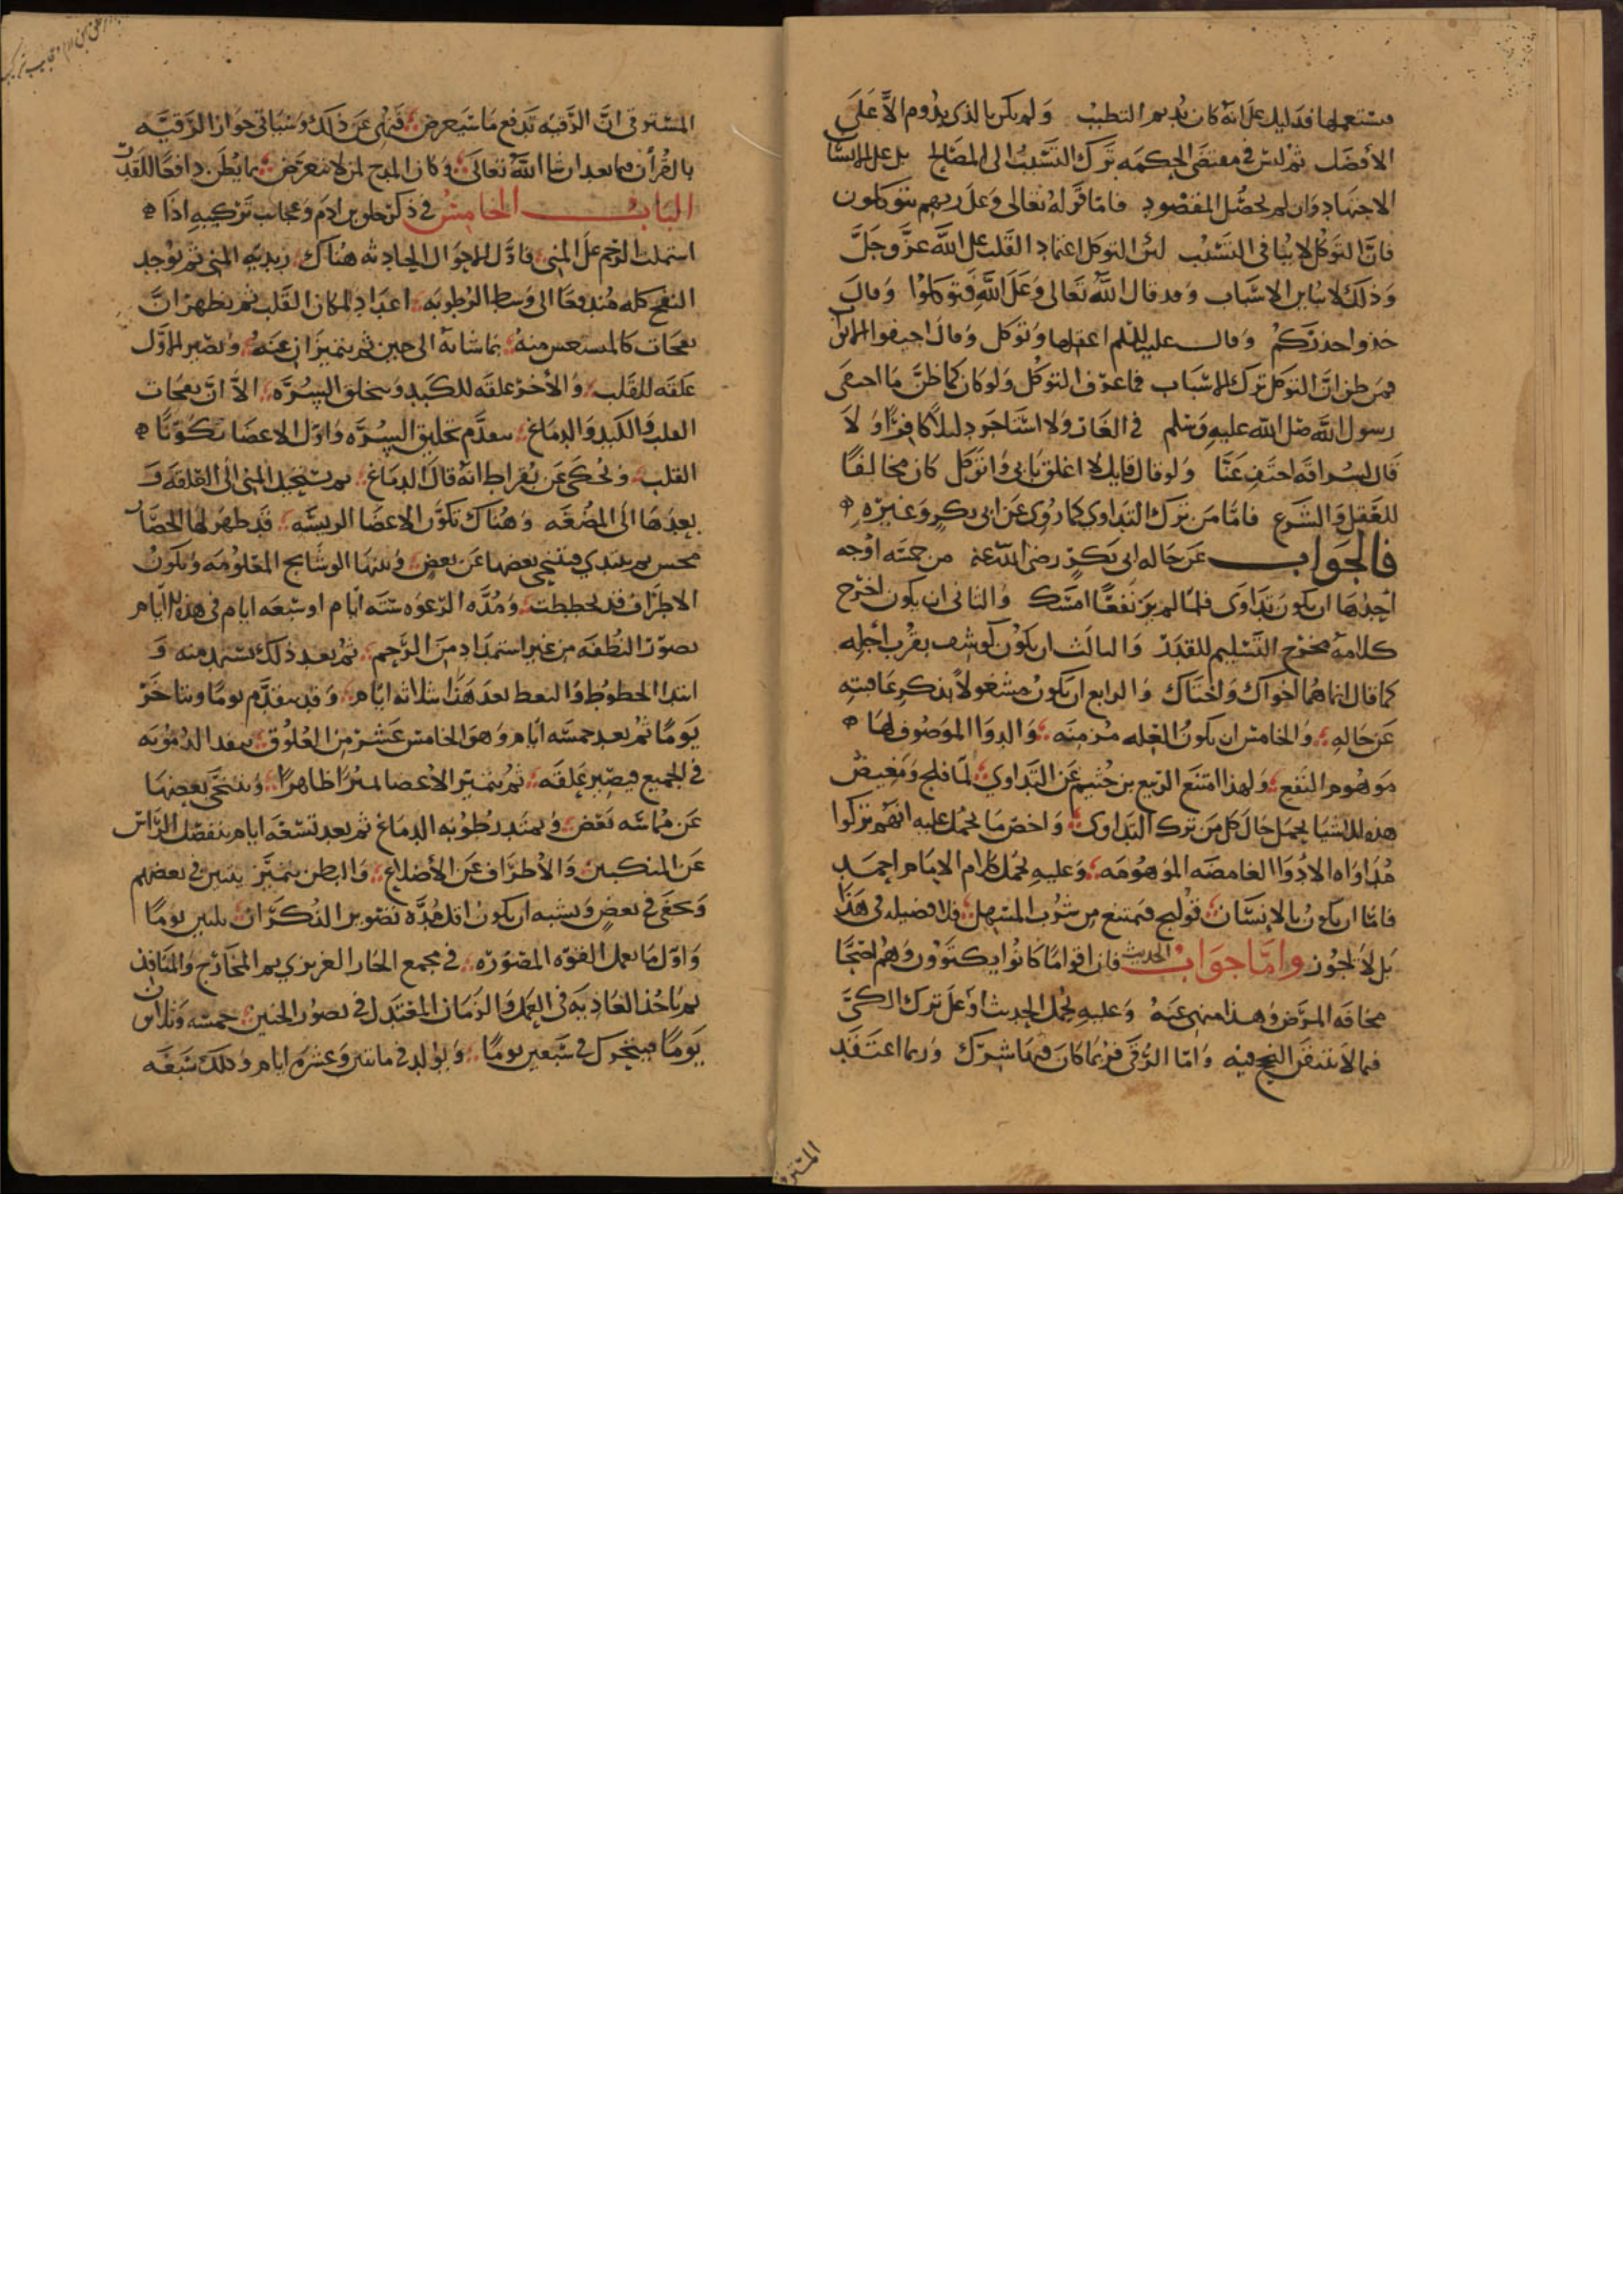 فتستعملها فدليل على انه كان يديم التطبب ولم يكن بالذي يدوم الا على
الأفضل ثم ليس في مقتضى الحكمه ترك التسبب الى المصالح بل على الانسان
الاجتهاد وان لم يحصل المقصود فاما قوله تعالى وعلى ربهم يتوكلون
فان التوكل لا ينافي التسبب لان التوكل اعتماد القلب على الله عز وجل
وذلك لا يباين الاسباب وقد قال الله تعالى وعلى الله فتوكلوا وقال
خذوا حذركم وقال عليه السلم اعقلها وتوكل وقال اخيفوا الهوام
فمن ظن ان التوكل ترك الاسباب فما عرف التوكل ولو كان كما ظن ما اختفى
رسول الله صلى الله عليه وسلم في الغار ولا استاجر دليلا كافرا ولا
قال لسراقه اخف عنا ولو قال قايل لا اغلق بابي واتوكل كان مخالفا
للعقل والشرع فاما من ترك التداوي كما روي عن ابي بكر وغيره
فالجواب عن حاله ابي بكر رضي الله عنه من خمسه اوجه
احدها ان يكون تداوى فلما لم ير نفعا امسك والثاني ان يكون اخرج
كلامه مخرج التسليم للقدر والثالث ان يكون كوشف بقرب أجله
كما قال انما هما اخواك واختاك والرابع ان يكون مشغولا بذكر عاقبته
عن حاله والخامس ان يكون العله مزمنه والدوا الموصوف لها
موهوم النفع ولهذا امتنع الربيع بن خثيم عن التداوي لما فلج وببعض
هذه الاشيا يحمل حال كل من ترك التداوى واخص ما يحمل عليه انهم تركوا
مداواه الادوا الغامضه الموهومه وعليه يحمل كلام الامام احمد
فاما ان يكون بالإنسان قولنج فيمتنع من شرب المسهل فلا فضيله في هذا
بل لا يجوز واما جواب الحديث فان اقواما كانوا يكتوون وهم اصحا
مخافه المرض وهذا منهي عنه وعليه يحمل الحديث او على ترك الكي
فيما لا يتيقن النجح فيه واما الرقى فربما كان فيها شرك وربما اعتقد
المسترقي
المسترقي ان الرقيه تدفع ما سيعرض فنهي عن ذلك وسياتي جواز الرقيه
بالقرأن فيما بعد ان شا الله تعالى وكان المدح لمن لا يتعرض بما يظن دافعا للقدر
الباب الخامس في ذكر خلق بن ادم وعجائب تركيبه اذا
اشتملت الرحم على المني فاول الاحوال الحادثه هناك زبديه المني ثم يوجد
النفخ كله مندفعا الى وسط الرطوبه اعدادا لمكان القلب ثم يظهر ان
نفخات كالمنبعس منه تماشانه الى حين ثم يتميزان عنه ويصير الاول
علقه للقلب والأخر علقه للكبد ويتخلق السره الا ان نفخات
القلب والكبد والدماغ يتقدم تخليق السره واول الاعضا تكونا
القلب وحكى عن بقراط انه قال الدماغ ثم يستحيل المني الى العلقه و
بعدها الى المضغه وهناك تكون الاعضا الريسه قد ظهر لها انفصال
محس ثم يبتدي فيتنحي بعضها عن بعض وبينها الوشايج المعلومه وتكون
الاطراف قد تخططت ومده الرغوه سته ايام او سبعه ايام في هذه الايام
تصور النطفه من غير استمداد من الرحم ثم بعد ذلك تستمد منه و
ابتدا الخطوط والنقط بعد هذا بثلاثه ايام وقد يتقدم يوما ويتاخر
يوما ثم بعد خمسه أيام وهو الخامس عشر من العلوق ينفذ الدمويه
في الجميع فيصير علقه ثم يتميز الأعضا تميزا ظاهرا ويتنحى بعضها
عن مماسه بعض ويمتد رطوبه الدماغ ثم بعد تسعه ايام ينفصل الراس
عن المنكبين والأطراف عن الأضلاع والبطن يتميز يتبين في بعضهم
ويخفى في بعض ويشبه ان يكون اقل مده تصوير الذكران ثلثين يوما
واول ما يعمل القوه المصوره في مجمع الحار الغريزي ثم المخارج والمنافذ
ثم تاخذ الغاذيه في العمل والزمان المعتدل في تصور الجنين خمسه وثلاثون
يوما فيتحرك في سبعين يوما ويولد في مائتين وعشره ايام وذلك سبعه